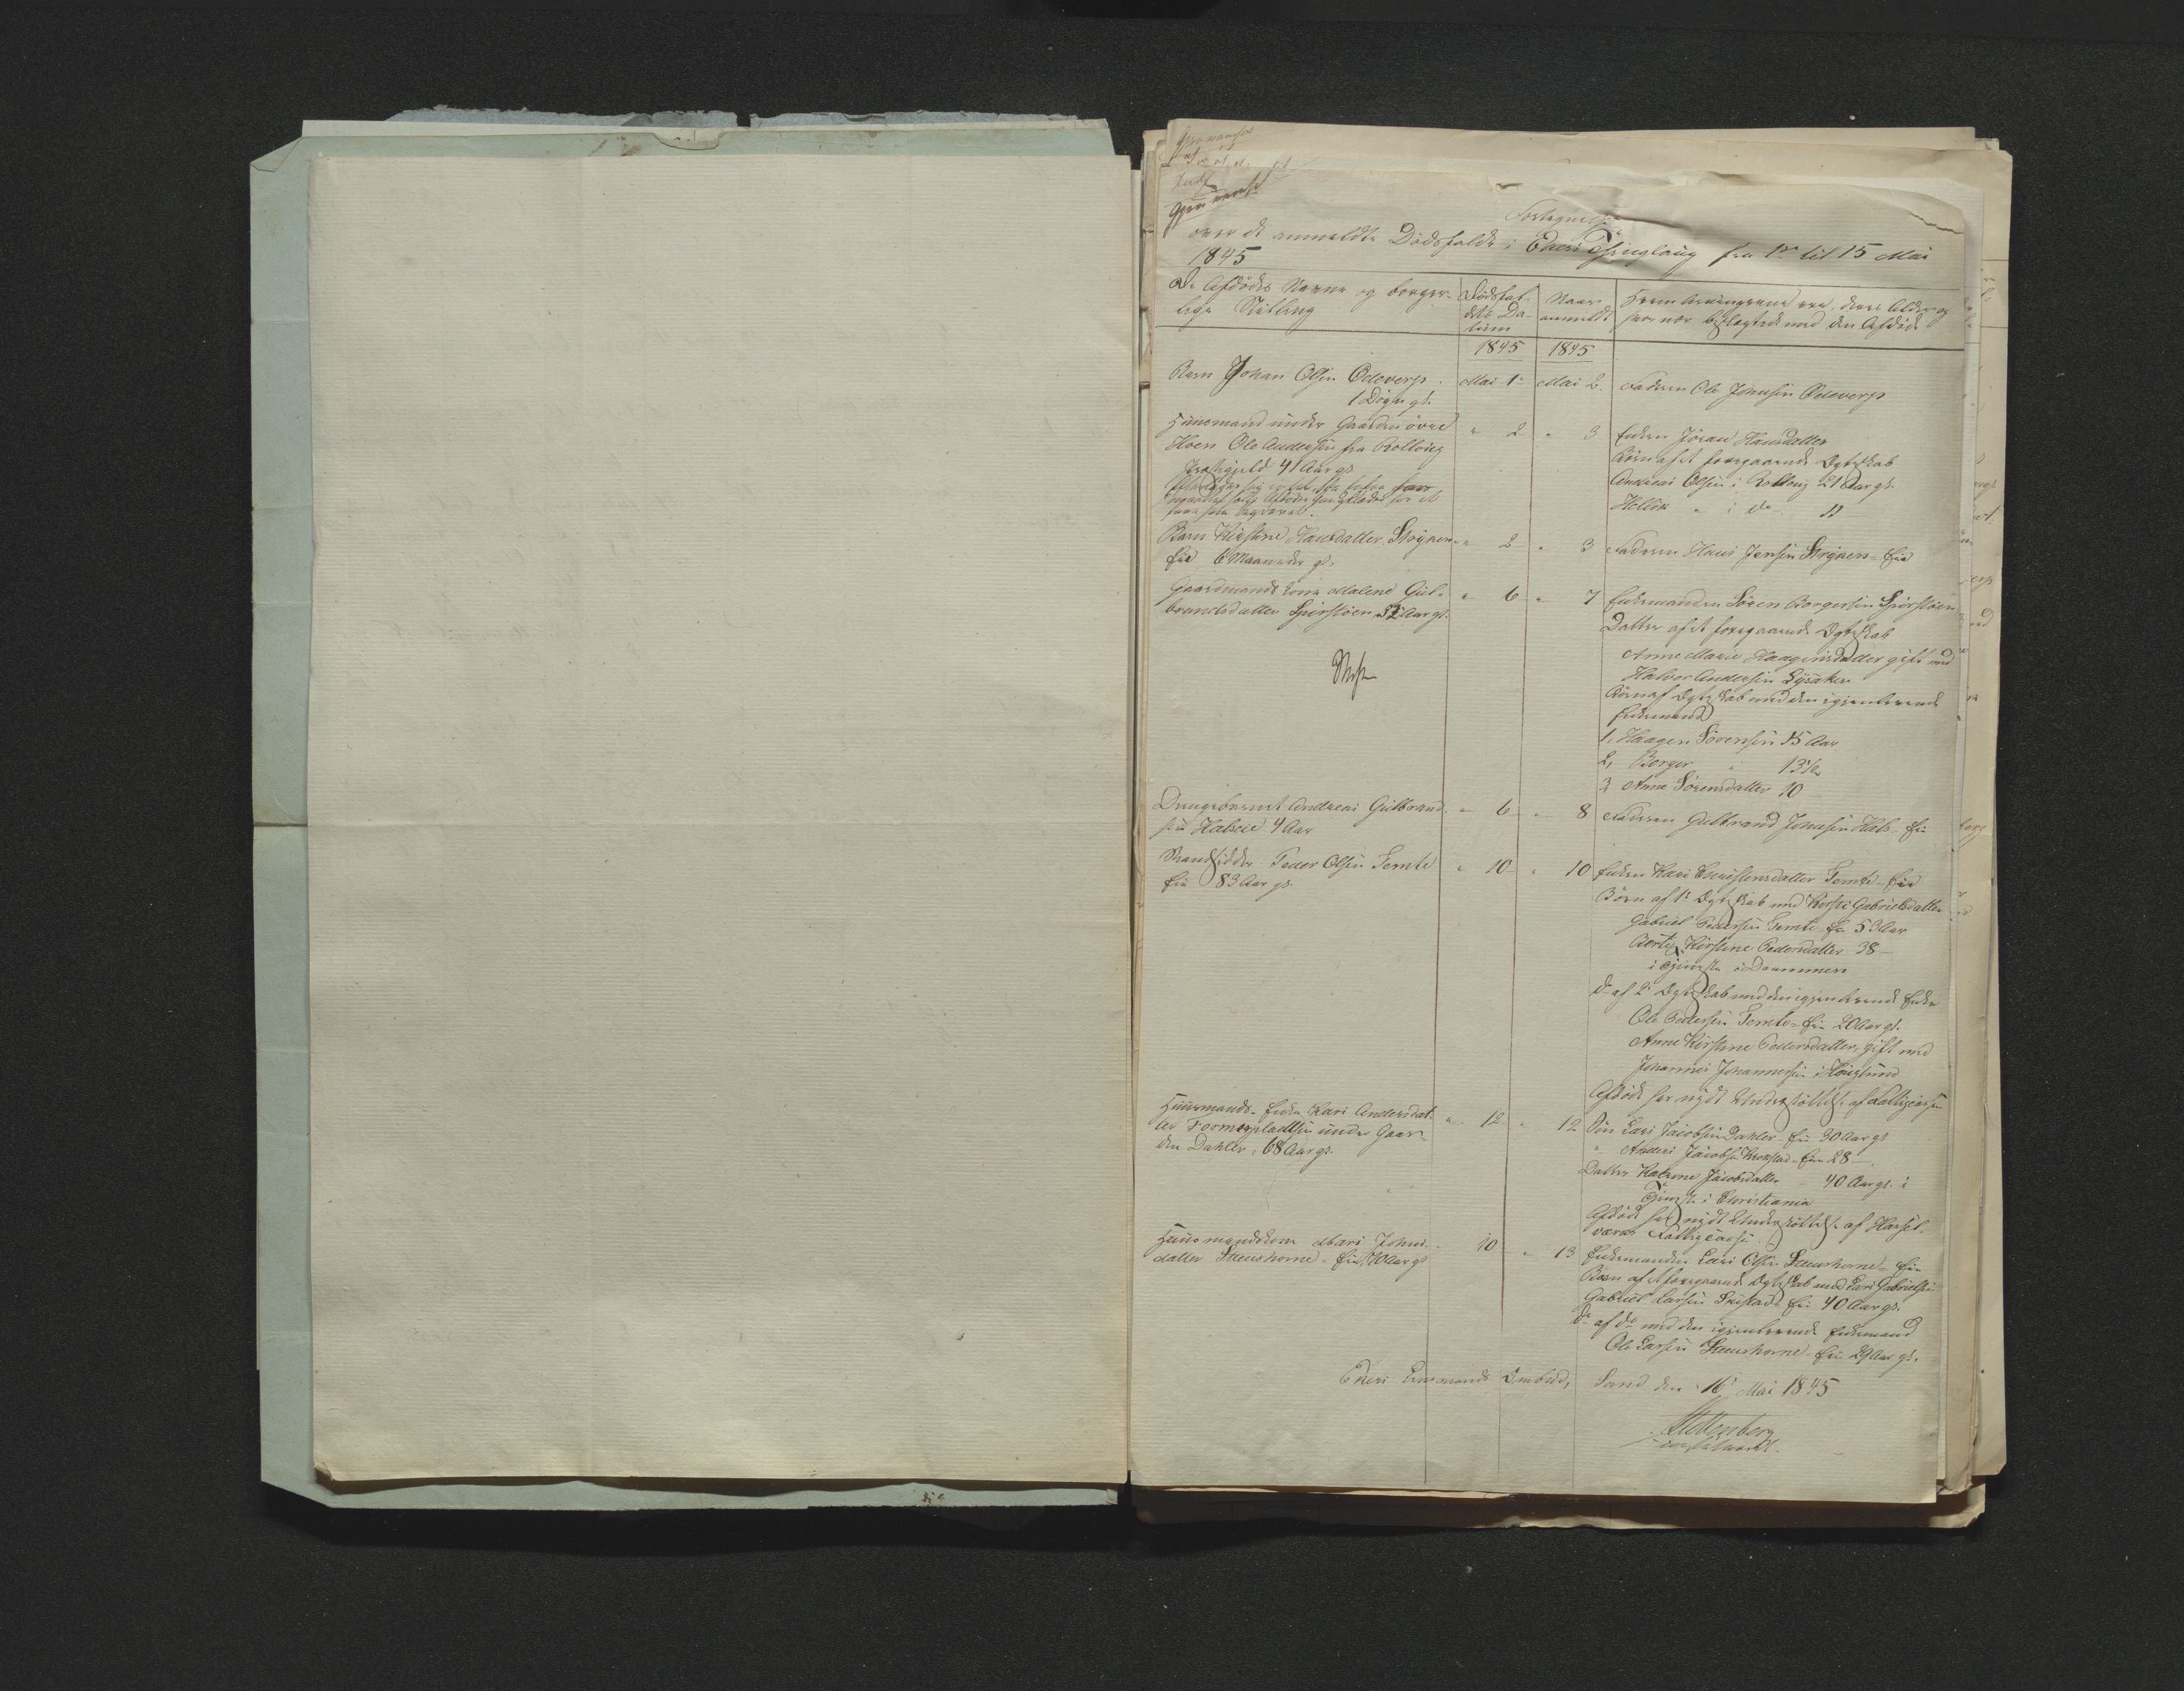 Fortegnelse
over de anmeldte Dödsfalde i Egers Thinglaug fra 1ste til 15 Mai
1845
De Afdödes Navne og borger-
lige Stilling
Dödsfal-
dets Da-
tum
Naar
anmeldt
Hvem Arvingerne ere, deres Alder og
hvor nær beslægtede med den Afdöde
1845 1845
Barn Johan Olsen Odeverp
1 Dögn gl.
Mai 1. Mai 2.
Faderen Ole Jonassen Odeverp
Huusmand under Gaarden övre
Hoen Ole Andersen fra Rollaug
Præstegjeld 41 Aar gl.
" 2 " 3
Enken Jöran Hansdatter
Börn af et foregaaende Ægteskab
Andreas Olsen i Rollaug 21 Aar gl.
i do 11
Barn Kirstine Hansdatter
6 Maaneder gl.
" 2 " 3
Faderen Hans Jensen
Gaardmands Kone Malene Gul-
brandsdatter 52 Aar gl.
" 6 " 7
Enkemanden Sören Borgersen
Datter af et foregaaende Ægteskab
Anne Marie Haagensdatter gift med
Halvor Andersen Lysaker
Börn af Ægteskab med den igjenlevende
Enkemand
1, Haagen Sörensen 15 Aar
2, Borger " 13 1/2
3, Anne Sörensdatter 10
Drengebarnet Andreas Gulbrand-
sen Halseie 4 Aar
" 6 " 8
Faderen Gulbrand Jonassen Hals-Eie
Strandsidder Peder Olsen Temte
Eie 83 Aar gl.
" 10 " 10
Enken Kari Christensdatter Temte-Eie
Börn af 1ste Ægteskab med Kirsti Gabrielsdatter
Gabriel Pedersen Temte-Eie 53 Aar
Berthe Kirstine Pedersdatter 38 -
i Tjeneste i Drammen
do af 2det Ægteskab med den igjenlevende Enke
Ole Pedersen Temte-Eie 20 Aar gl.
Anne Kirstine Pedersdatter, gift med
Johannes Johannesen i
Afdöde har nydt Understöttelse af Fattigcassen
Huusmands-Enke Kari Andersdat-
ter under Gaar-
den Dahler, 68 Aar gl.
" 12 " 12
Sön Lars Jacobsen Dahler-Eie 30 Aar gl
" Anders Jacobsen Krokstad-Eie 28 -
Datter Jacobsdatter 40 Aar gl. i
Tjeneste i Christiania
Afdöde har nydt Understöttelse af Hassel-
værks Fattigcasse
Huusmandskone Mari Johns-
datter Steenshorne-Eie 70 Aar gl
10 " 13
Enkemanden Lars Olsen Steenshorne-Eie
Börn af et foregaaende Ægteskab med Lars Gabrielsen
Gabriel Larsen Eie 40 Aar gl.
do af do med den igjenlevende Enkemand
Ole Larsen Steenshorne-Eie 29 Aar gl.
Egers Lensmands Ombud, Sand den 16de Mai 1845
Stoltenberg